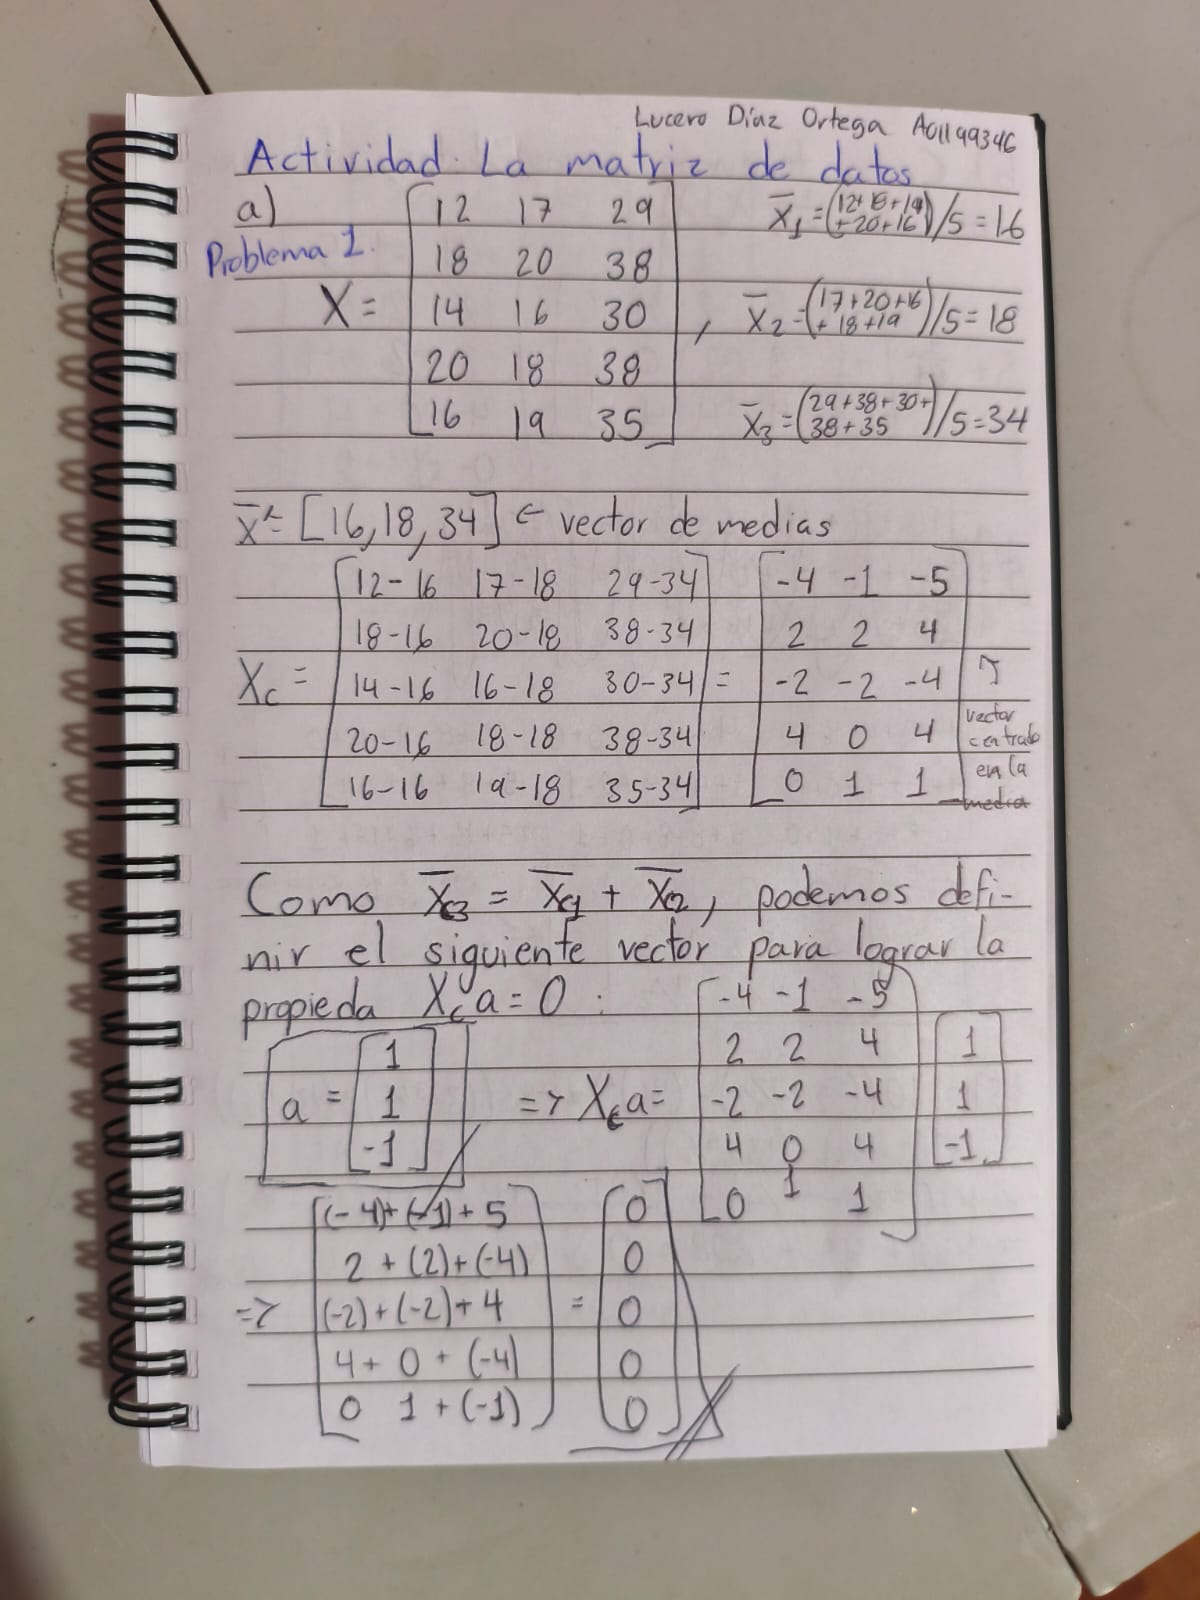 Lucero Díaz Ortega A01199346
Actividad. La matriz de datos
a)
Problema 1.
X = [12 17 29
18 20 38
14 16 30
20 18 38
16 19 35] ,
X̄1 = (12+18+14 + 20+16)/5 = 16
X̄2 = (17+20+16 + 18+19)/5 = 18
X̄3 = (29+38+30+ 38+35)/5 = 34
X̄' = [16, 18, 34] ← vector de medias
Xc = [12-16 17-18 29-34
18-16 20-18 38-34
14-16 16-18 30-34
20-16 18-18 38-34
16-16 19-18 35-34]
= [-4 -1 -5
2 2 4
-2 -2 -4
4 0 4
0 1 1]
↑
vector
centrado
en la
media
Como X̄c3 = X̄c1 + X̄c2, podemos defi-
nir el siguiente vector para lograr la
propieda Xc a = 0 :
a = [1
1
-1]
=> Xc a =
[-4 -1 -5
2 2 4
-2 -2 -4
4 0 4
0 1 1]
[1
1
-1]
=> [(-4)+(-1)+5
2 + (2)+(-4)
(-2)+(-2)+4
4 + 0 + (-4)
0 1 + (-1)]
= [0
0
0
0
0]